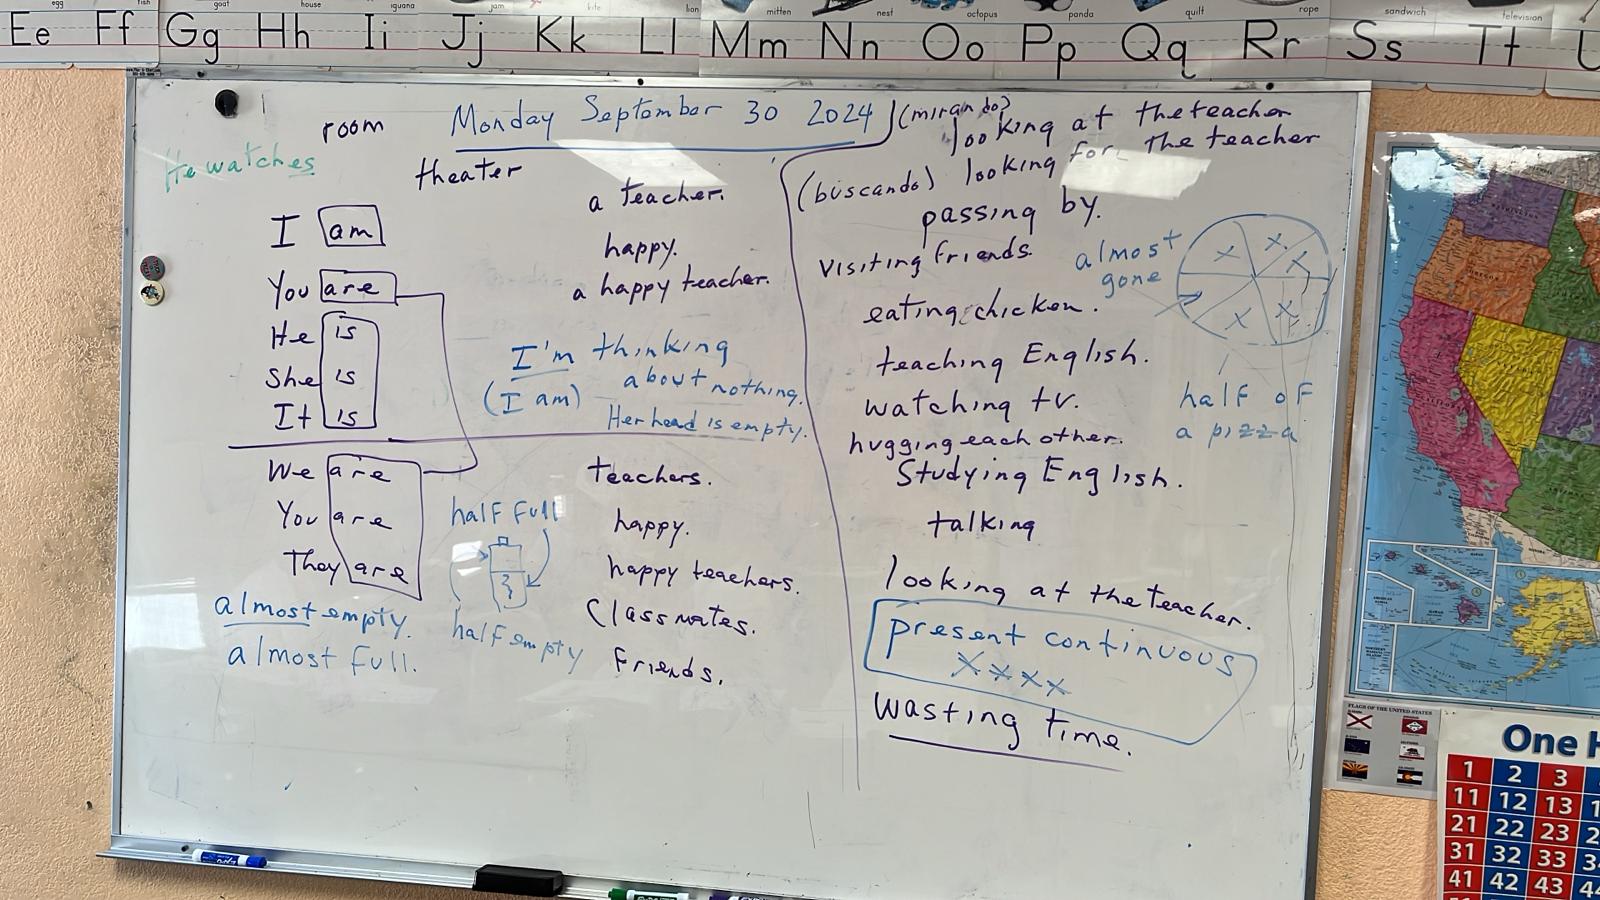 egg
fish
goat
house
iguana
jam
kite
lion
mitten
nest
octopus
panda
quilt
rope
sandwich
television
Ee Ff Gg Hh Ii Jj Kk Ll Mm Nn Oo Pp Qq Rr Ss Tt U
room
Monday September 30 2024
He watches
theater
a teacher.
I am
happy.
You are
a happy teacher.
He is
She is
It is
I'm thinking
about nothing.
(I am)
Her head is empty.
We are
teachers.
You are
half full
happy.
They are
happy teachers.
almost empty.
half empty
Classmates.
almost full.
Friends.
(mirando)
looking at the teacher
looking for the teacher
(buscando)
passing by.
visiting friends.
almost
gone
x x x x x
eating chicken.
teaching English.
watching tv.
half of
a pizza
hugging each other.
Studying English.
talking
looking at the teacher.
present continuous
x x x x
wasting time.
FLAGS OF THE UNITED STATES
One H
1 2 3
11 12 13 1
21 22 23 2
31 32 33 3
41 42 43 4